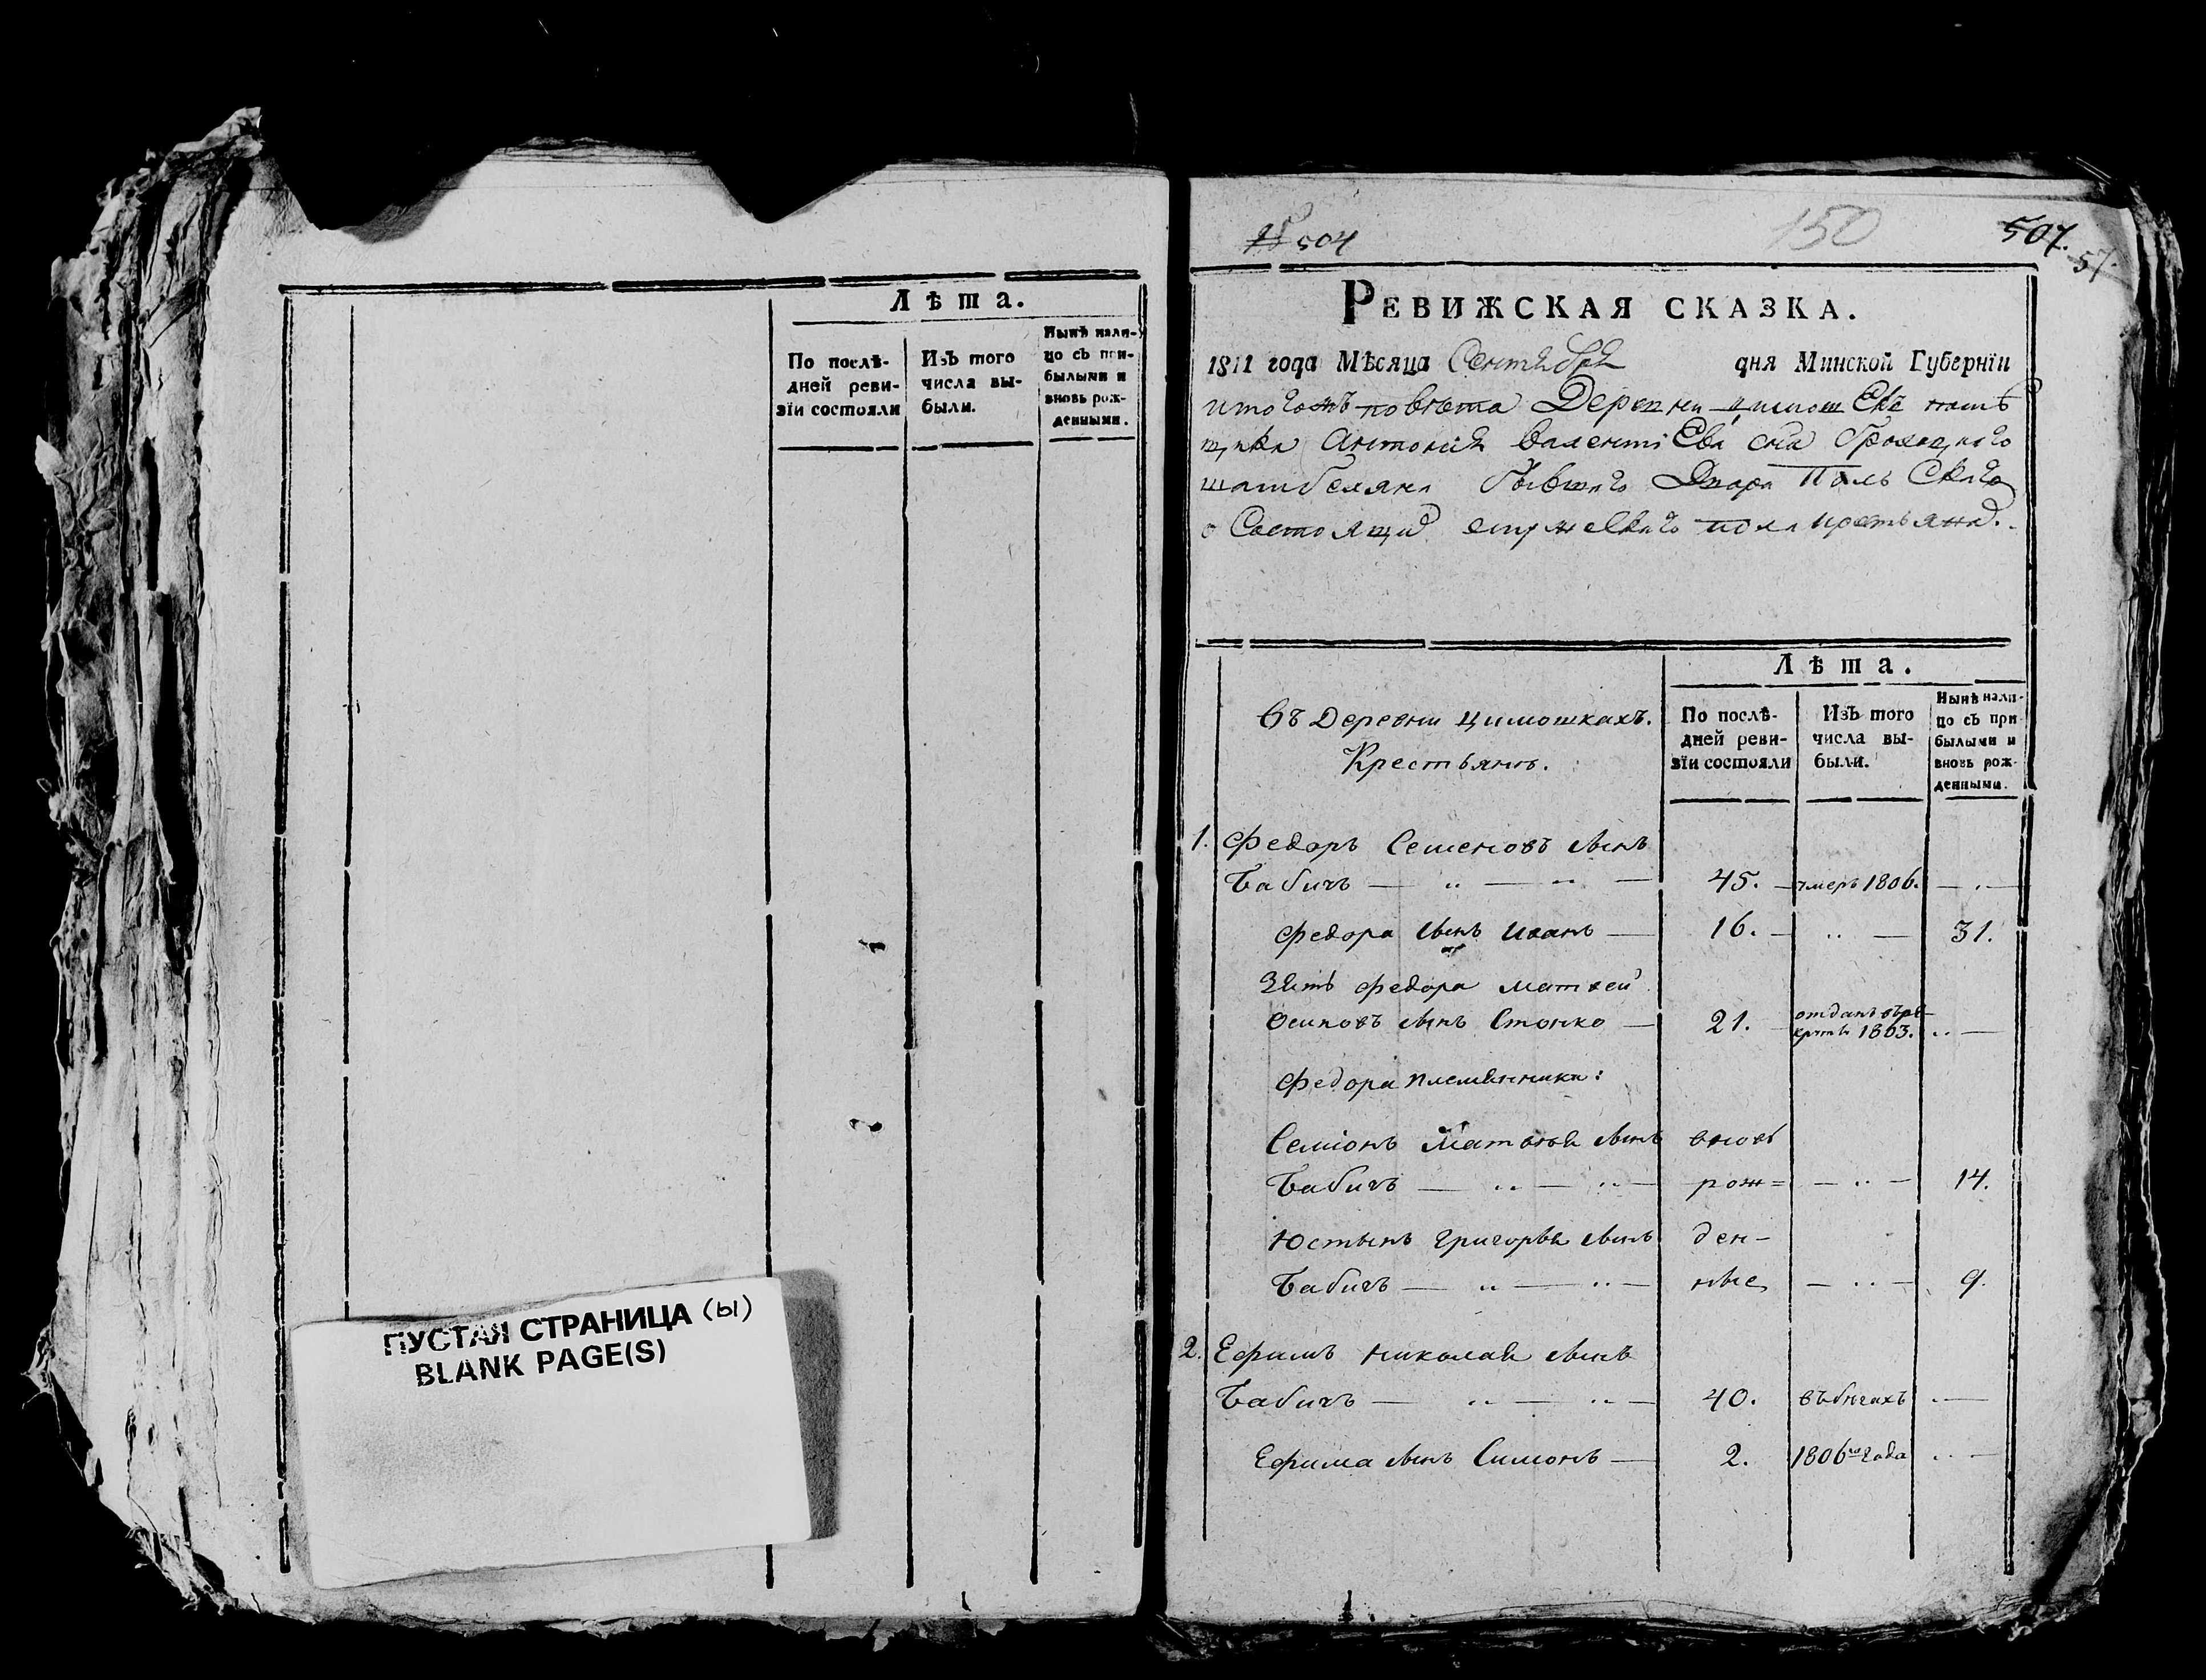 Лѣта.
По послѣ-
дней реви-
зіи состояли
Изъ того
числа вы-
были.
Нынѣ нали-
цо съ при-
былыми и
вновь рож-
денными.
ПУСТАЯ СТРАНИЦА (ы)
BLANK PAGE(S)
№ 504
150
507.
57.
РЕВИЖСКАЯ СКАЗКА.
1811 года Мѣсяца Сентября дня Минской Губерніи
повѣта Деревни
Антонія Валентіева сна
бывшаго Двора Польскаго
о Состоящихъ мужескаго пола крестьянахъ.
Въ Деревни Цимошкахъ.
Крестьянъ.
Лѣта.
По послѣ-
дней реви-
зіи состояли
Изъ того
числа вы-
были.
Нынѣ нали-
цо съ при-
былыми и
вновь рож-
денными.
1. Федоръ Семеновъ сынъ
Бабичъ — „ — „ — 45. — умеръ 1806. — . —
Федора сынъ Иванъ — 16. — „ — 31.
Зять Федора Матвей
Осиповъ сынъ Стонко — 21. отданъ въ ре-
круты 1803. „ —
Федора племянники:
Семіонъ Матвея сынъ вновь
Бабичъ — „ — „ — рож= — „ — 14.
Юстынъ Григорья сынъ ден-
Бабичъ — „ — „ — ные — „ — 9.
2. Ефимъ Николая сынъ
Бабичъ — „ — „ — 40. въ бѣгахъ . —
Ефима сынъ Симонъ — 2. 1806го года „ —